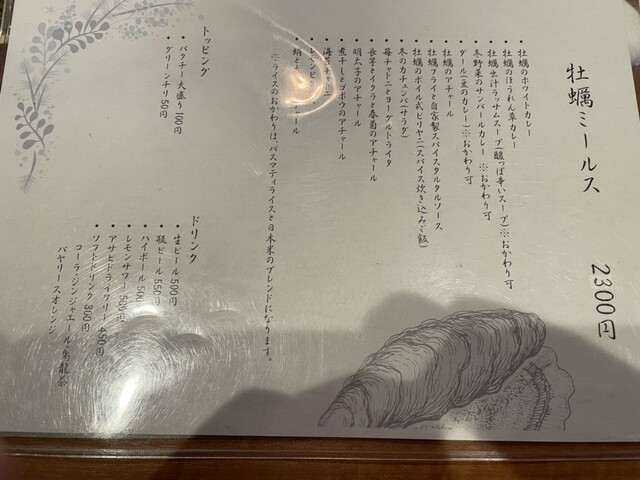 牡蠣ミールス 2300円
• 牡蠣のホワイトカレー
• 牡蠣のほうれん草カレー
• 牡蠣出汁ラッサムスープ(酸っぱ辛いスープ)※おかわり可
• 冬野菜のサンバールカレー ※おかわり可
• ダール(豆のカレー)※おかわり可
• 牡蠣のアチャール
• 牡蠣フライと自家製スパイスタルタルソース
• 牡蠣のボイル式ビリヤニ(スパイス炊き込みご飯)
• 冬のカチュンバ(サラダ)
• 苺チャトニとヨーグルトライタ
• 長芋とイクラと春菊のアチャール
• 明太子のアチャール
• 煮干しとゴボウのアチャール
• 海苔
•
•
※ライスのおかわりは、バスマティライスと日本米のブレンドになります。
トッピング
• パクチー大盛り 100円
• グリーンチリ 50円
ドリンク
• 生ビール 500円
• 瓶ビール 550円
• ハイボール 500
• レモンサワー 500円
• アサヒドライゼロ 450円
• ソフトドリンク 300円
コーラ・ジンジャエール・烏龍茶
バヤリースオレンジ